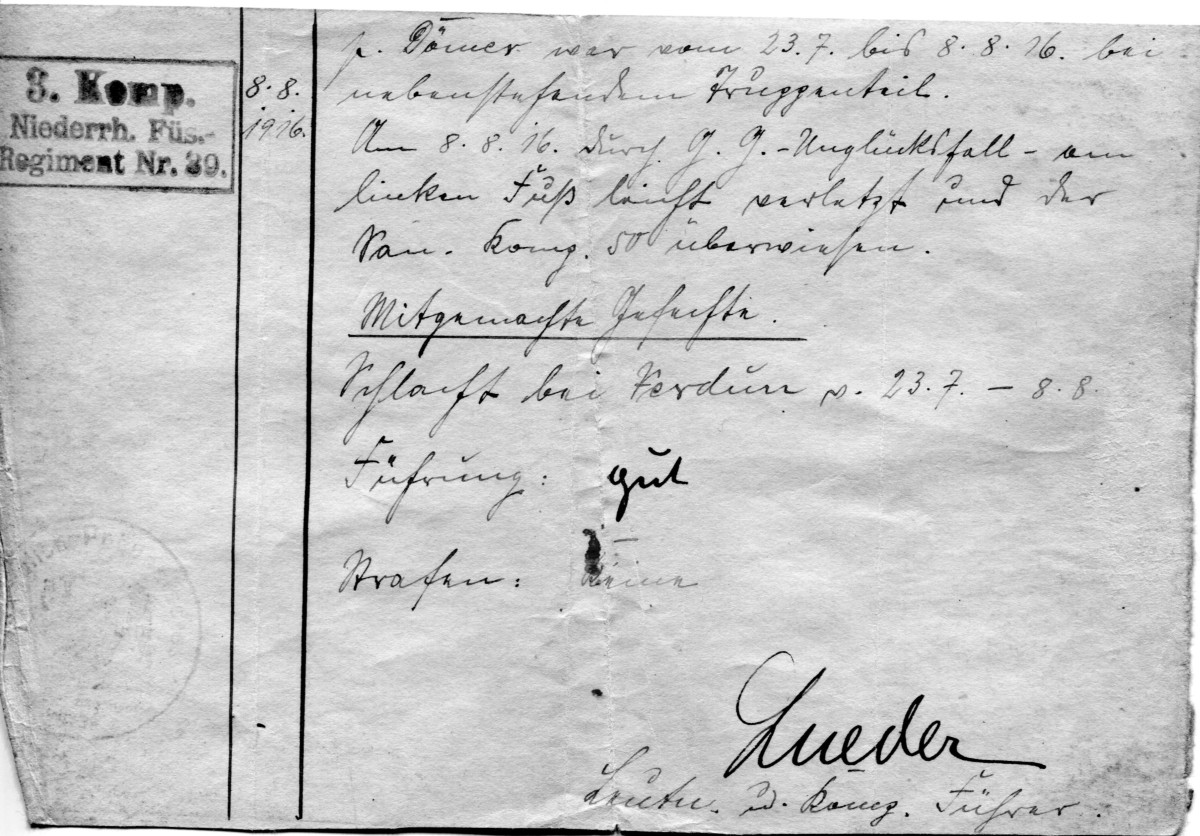 3. Komp.
Niederrh. Füs.-
Regiment Nr. 39.
8.8.
1916.
p. Dömer war vom 23.7. bis 8.8.16. bei
nebenstehendem Truppenteil.
Am 8.8.16. durch G. G. - Unglücksfall - am
linken Fuß leicht verletzt und der
San. Komp. 50 überwiesen.
Mitgemachte Gefechte.
Schlacht bei Verdun v. 23.7. – 8.8.
Führung: gut
Strafen: keine
Lueder
Leutn. u. Komp. Führer.